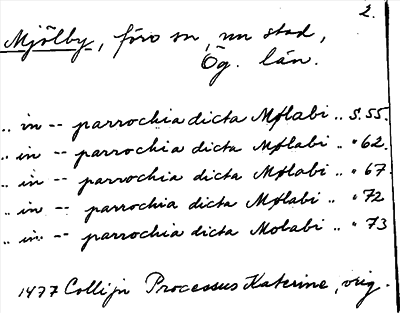 2.
Mjölby, förs sn, nu stad,
Ög. län.
.. in -- parrochia dicta Mølabi .. s. 55.
.. in -- parrochia dicta Mølabi .. " 62.
.. in -- parrochia dicta Mølabi .. " 67.
.. in -- parrochia dicta Mølabi .. " 72
.. in -- parrochia dicta Molabi .. " 73
1477 Collijn Processus Katerine, orig.